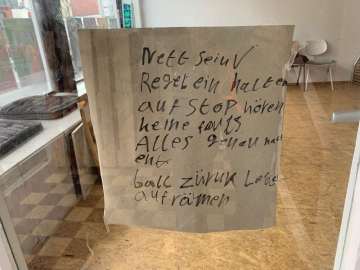 Nett sein V
Regel ein halten
auf Stop hören
keine
Alles genau
ent
ball zürük Lege
aufrämen